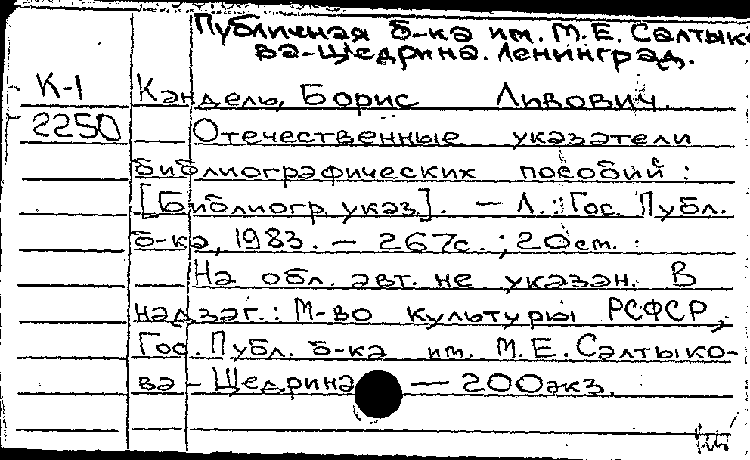 Публичная б-ка им. М.Е. Салтыко
ва-Щедрина. Ленинград.
К-1 Кандель, Борис Львович.
2250 Отечественные указатели
библиографических пособий:
[Библиогр. указ.]. — Л.: Гос. Публ.
б-ка, 1983. — 267с.; 20см.
На обл. авт. не указан. В
надзаг.: М-во культуры РСФСР,
Гос. Публ. б-ка им. М.Е. Салтыко-
ва-Щедрина — 200экз.